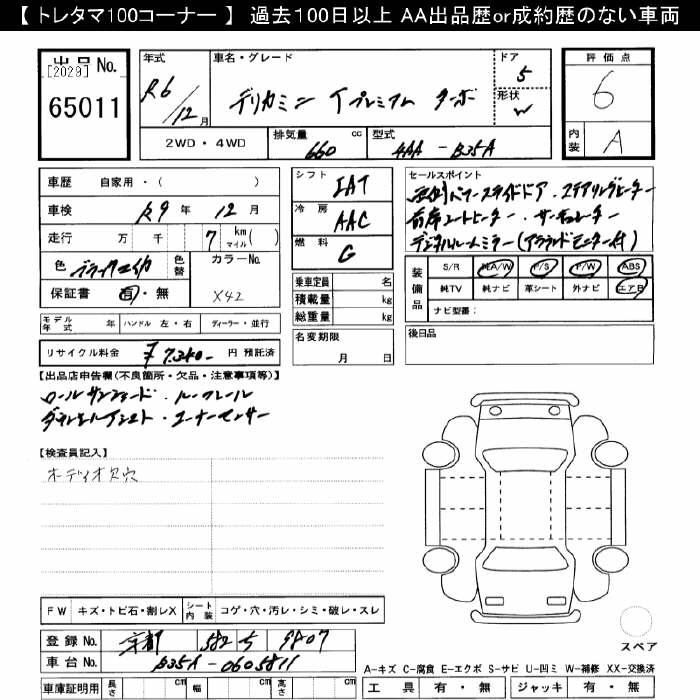 【 トレタマ100コーナー 】 過去100日以上 AA出品歴or成約歴のない車両
出品 No.
[2029]
65011
年式
R6/12月
車名・グレード
デリカミニ Tプレミアム ターボ
ドア
5
形状
W
評価点
6
内装
A
2WD・4WD
排気量 660 cc
型式 4AA - B35A
車歴 自家用・( )
車検 R9年 12月
走行 万 千 7 km マイル ( )
色 ブラックマイカ
色替
カラーNo.
X42
保証書 有・無
シフト
IAT
冷房
AAC
燃料
G
セールスポイント
両側パワースライドドア・ステアリングヒーター
前席シートヒーター・サーキュレーター
デジタルルームミラー(アラウンドモニター付)
装備品
S/R PA/W P/S P/W ABS
純TV 純ナビ 革シート 外ナビ エアB
ナビ型番:
乗車定員 名
積載量 kg
総重量 kg
後日品
モデル年式 年 ハンドル 左・右 ディーラー・並行
名変期限
月 日
リサイクル料金 ¥7,340- 円 預託済
【出品店申告欄(不良箇所・欠品・注意事項等)】
ロールサンシェード・ルーフレール
ダウンヒルアシスト・コーナーセンサー
【検査員記入】
オーディオ欠穴
FW キズ・トビ石・割レX
シート内装 コゲ・穴・汚レ・シミ・破レ・スレ
登録 No. 京都 582 う 9807
車台 No. B35A-0605811
車庫証明用 長さ cm 幅 cm 高さ cm
スペア
A-キズ C-腐食 E-エクボ S-サビ U-凹ミ W-補修 XX-交換済
工具 有・無 ジャッキ 有・無